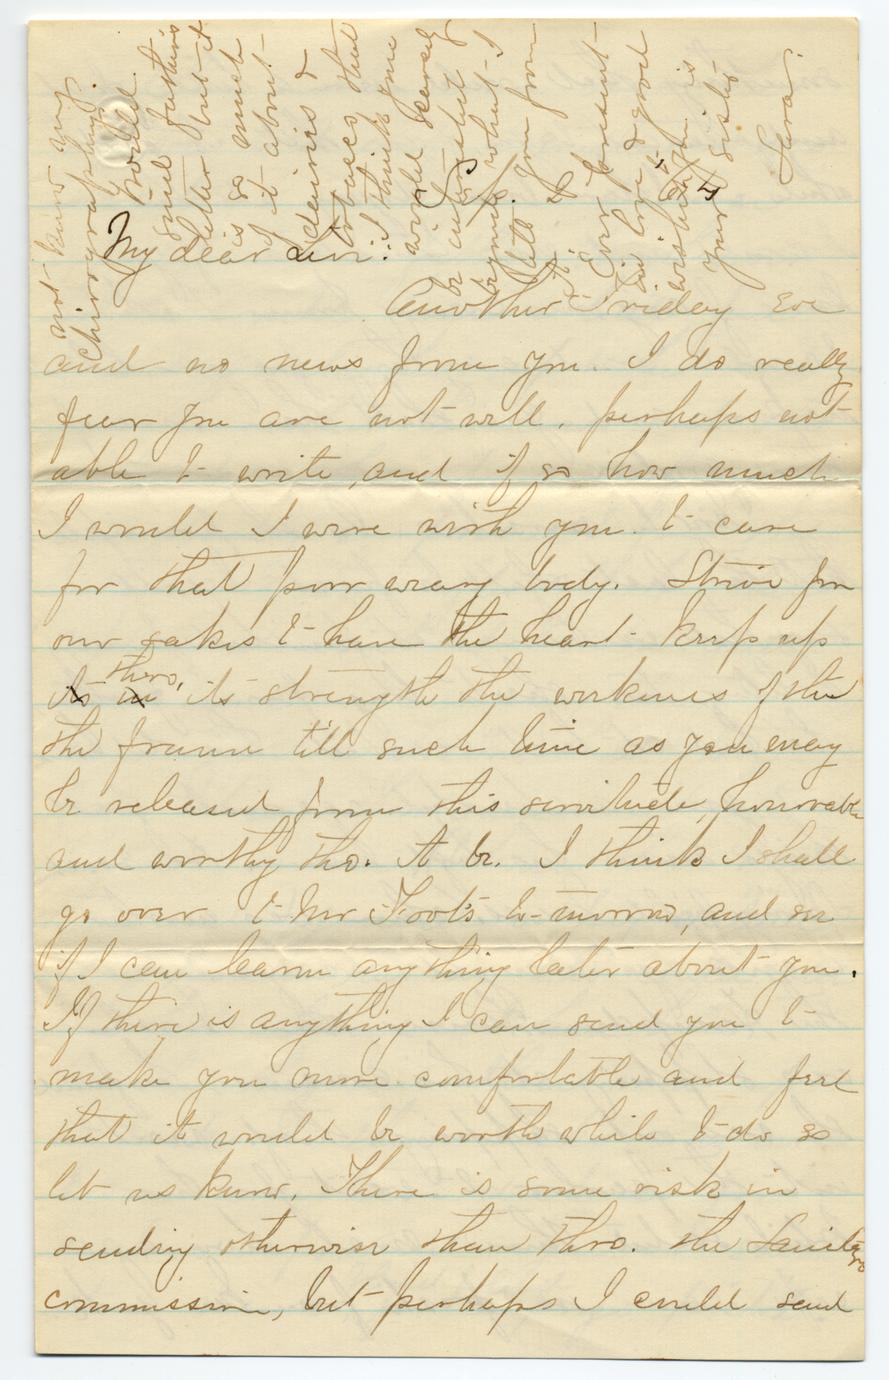 My dear Levi:
Another Friday Eve
and no news from you. I do really
fear you are not well, perhaps not
able to write, and if so how much
I would I were with you to care
for that poor weary body. Strive for
our sakes to have the heart keep up
its in thro, its strength the weakness of the
the frame till such time as you may
be released from this servitude, honorable
and worthy tho. it be. I think I shall
go over to Mr Foot's to-morrow, and see
if I can learn anything later about you.
If there is anything I can send you to
make you more comfortable and feel
that it would be worth while to do so
let us know. There is some risk in
sending otherwise than thro. the Sanitary
commission, but perhaps I could send
not know my
chirography.
Would
send father's
letter but it
is so much
of it about
dairies &
tobacco that
I think you
would scarcely
be interested
by me what I
Ever present
in love & good
wishes
Your sister